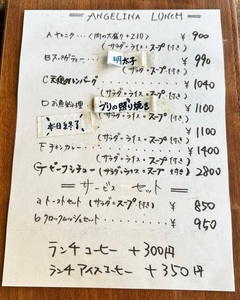 ANGELINA LUNCH
Aサービス (肉の大盛り+210) ¥900
(サラダ・ライス・スープ付き)
Bスパゲティー 明太子 ¥990
(サラダ・スープ付き)
C天使のハンバーグ ¥1040
(サラダ・ライス・スープ付き)
Dお魚料理 ブリの照り焼き ¥1100
(サラダ・ライス・スープ付き)
本日終了 ¥1100
(サラダ・ライス・スープ付き)
Fチキンカレー ¥1400
(サラダ・ライス・スープ付き)
Gビーフシチュー (サラダ・ライス・スープ付き) 2800
サービス セット
aトーストセット (サラダ・スープ付き) ¥850
bクロックムッシュセット ¥950
ランチコーヒー +300円
ランチアイスコーヒー +350円